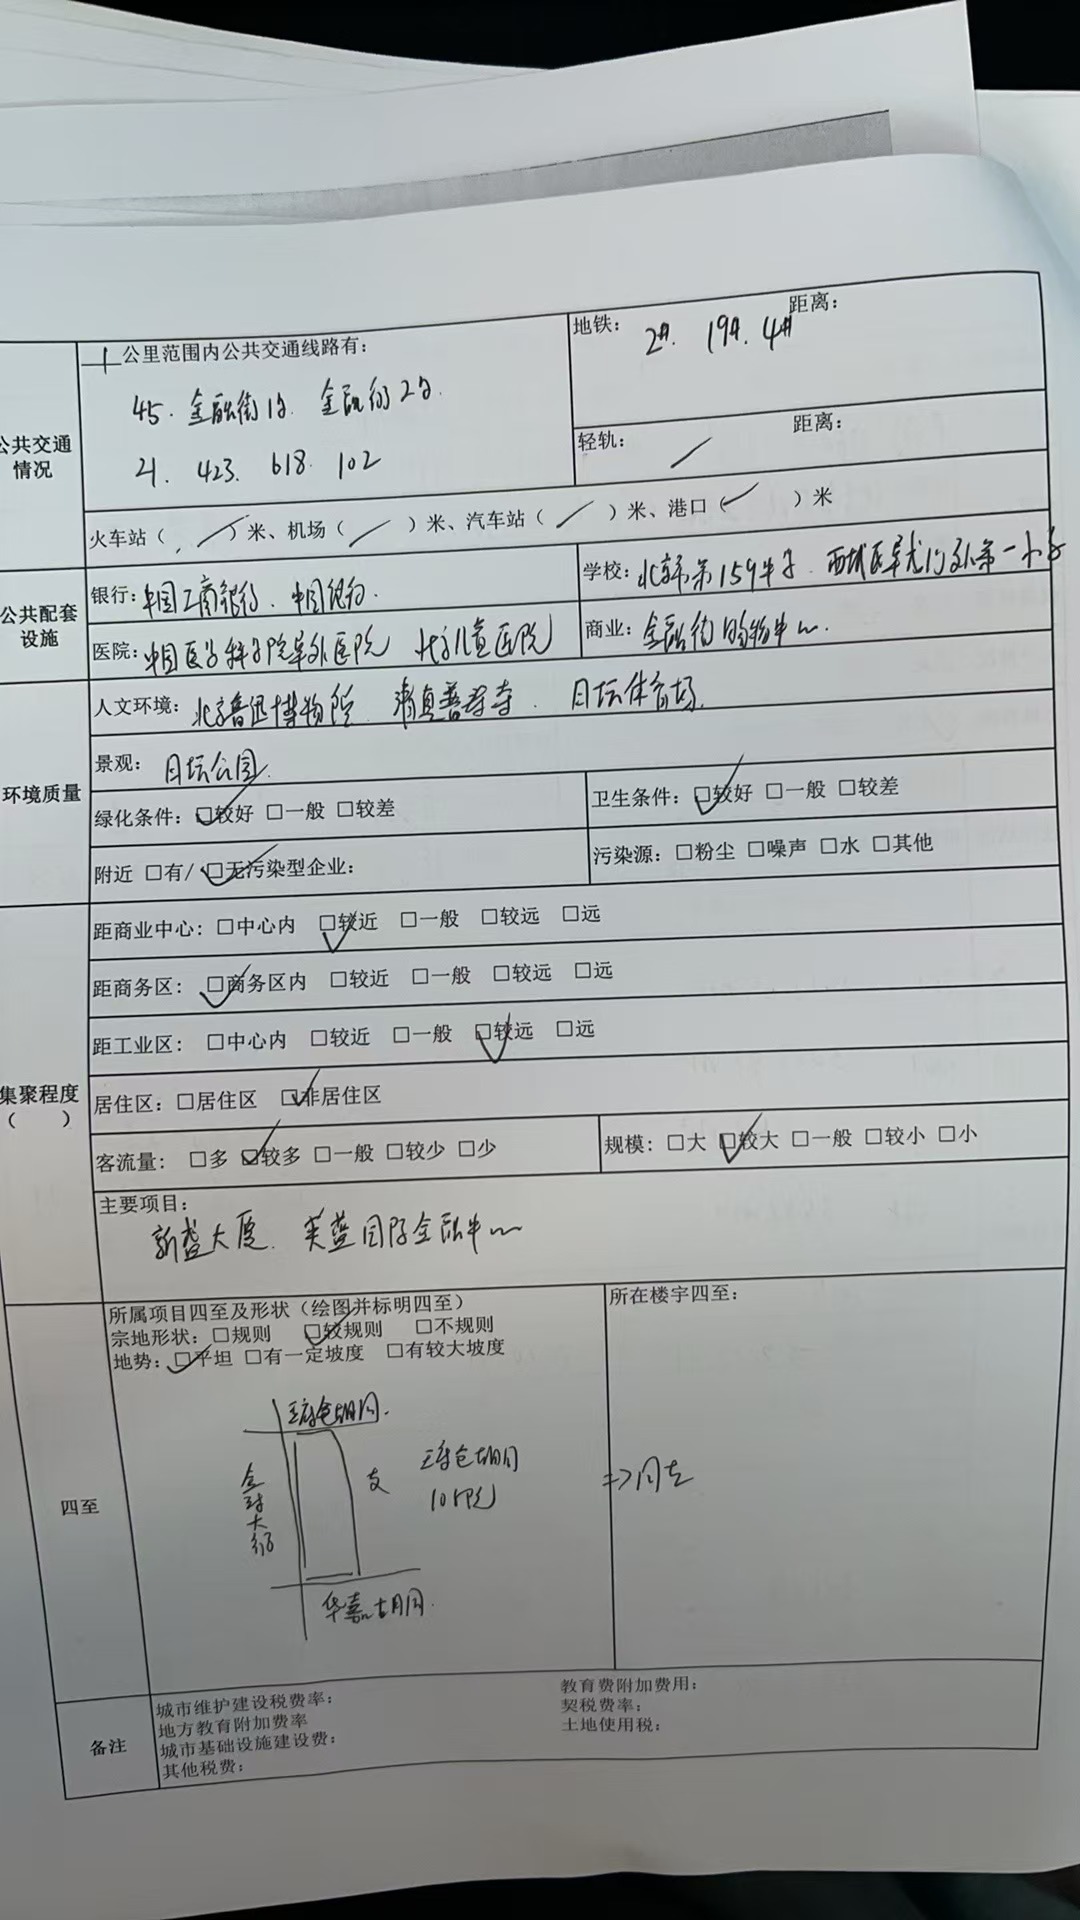 一 公里范围内公共交通线路有：
45. 金融街1号. 金融街2号.
21. 423. 618. 102
地铁： 距离：
2#. 19#. 4#
轻轨： / 距离：
公共交通情况
火车站（ / ）米、机场（ / ）米、汽车站（ / ）米、港口（ / ）米
公共配套设施
银行：中国工商银行、中国银行.
学校：北京市第159中学. 西城区阜成门外第一小学
医院：中国医学科学院阜外医院 北京儿童医院
商业：金融街购物中心.
人文环境：北京鲁迅博物院. 清真普寿寺. 月坛体育场.
环境质量
景观：月坛公园.
绿化条件：☑较好 □一般 □较差
卫生条件：☑较好 □一般 □较差
附近 □有/ ☑无污染型企业：
污染源：□粉尘 □噪声 □水 □其他
集聚程度
（ ）
距商业中心：□中心内 ☑较近 □一般 □较远 □远
距商务区：☑商务区内 □较近 □一般 □较远 □远
距工业区：□中心内 □较近 □一般 ☑较远 □远
居住区：□居住区 ☑非居住区
客流量：□多 ☑较多 □一般 □较少 □少
规模：□大 ☑较大 □一般 □较小 □小
主要项目：
新盛大厦. 英蓝国际金融中心
四至
所属项目四至及形状（绘图并标明四至）
宗地形状：□规则 ☑较规则 □不规则
地势：☑平坦 □有一定坡度 □有较大坡度
王府仓胡同.
金融大街
支
王府仓胡同
华嘉胡同.
所在楼宇四至：
=>同左
备注
城市维护建设税费率：
地方教育附加费率
城市基础设施建设费：
其他税费：
教育费附加费用：
契税费率：
土地使用税：